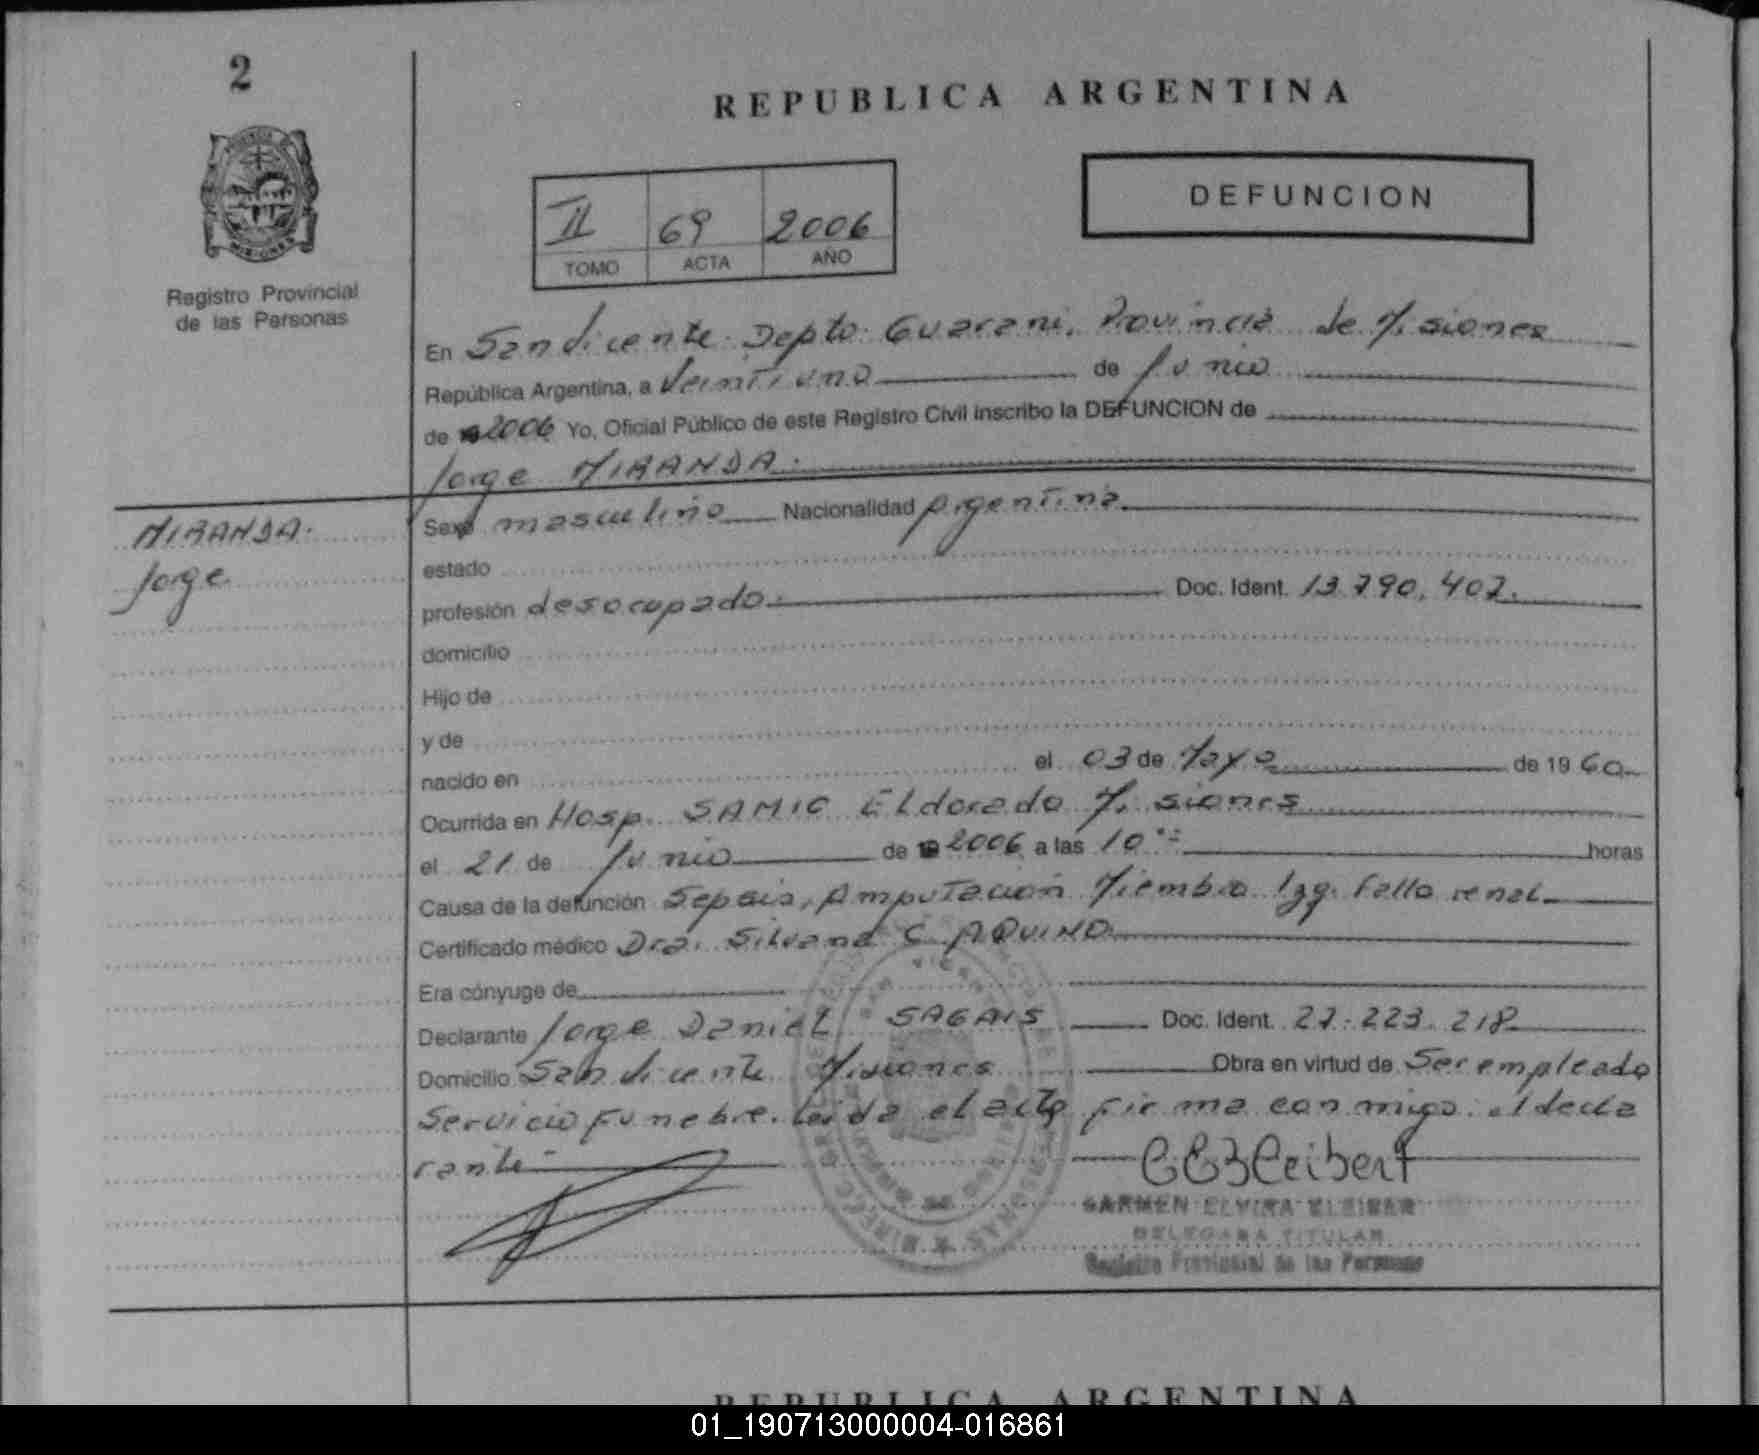 2
REPUBLICA ARGENTINA
DEFUNCION
II 69 2006
TOMO ACTA AÑO
Registro Provincial
de las Personas
En San Vicente Depto. Guarani, Provincia de Misiones
República Argentina, a Veintiuno de Junio
de 2006 Yo, Oficial Público de este Registro Civil inscribo la DEFUNCION de
Jorge MIRANDA.
MIRANDA.
Jorge
Sexo masculino Nacionalidad Argentina
estado
profesión desocupado. Doc. Ident. 13.790.402.
domicilio
Hijo de
y de
nacido en el 03 de Mayo de 1960
Ocurrida en Hosp. SAMIC Eldorado Misiones
el 21 de Junio de 2006 a las 10 horas
Causa de la defunción Sepsis, Amputación Miembro Izq. Fallo renal
Certificado médico Dra. Silvana C. AQUINO
Era cónyuge de
Declarante Jorge Daniel Doc. Ident. 27.223.218
Domicilio San Vicente Misiones Obra en virtud de Ser empleado
Servicio Funebre. Leida el acta firma conmigo el decla
rante
CARMEN ELVIRA
DELEGADA TITULAR
Registro Provincial de las Personas
REPUBLICA ARGENTINA
01_190713000004-016861